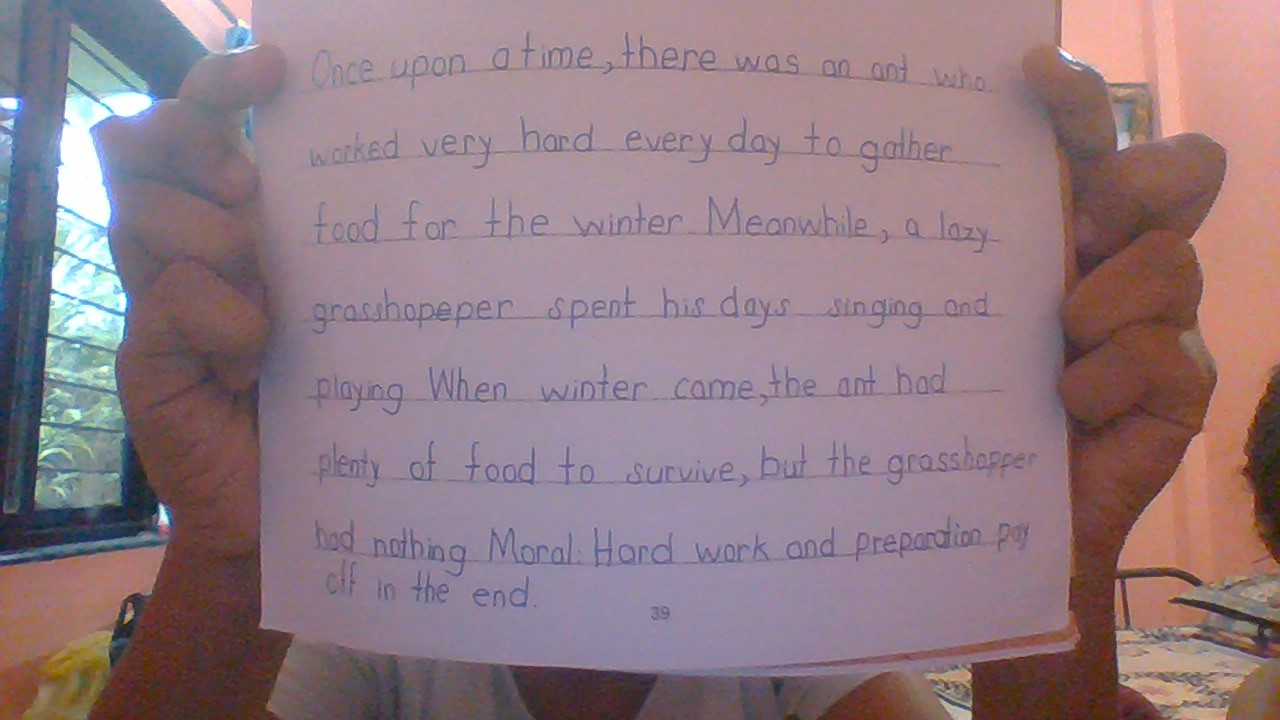 Once upon a time, there was an ant who
worked very hard every day to gather
food for the winter Meanwhile, a lazy
grasshopeper spent his days singing and
playing When winter came, the ant had
plenty of food to survive, but the grasshopper
had nothing Moral: Hard work and preparation pay
off in the end.
39